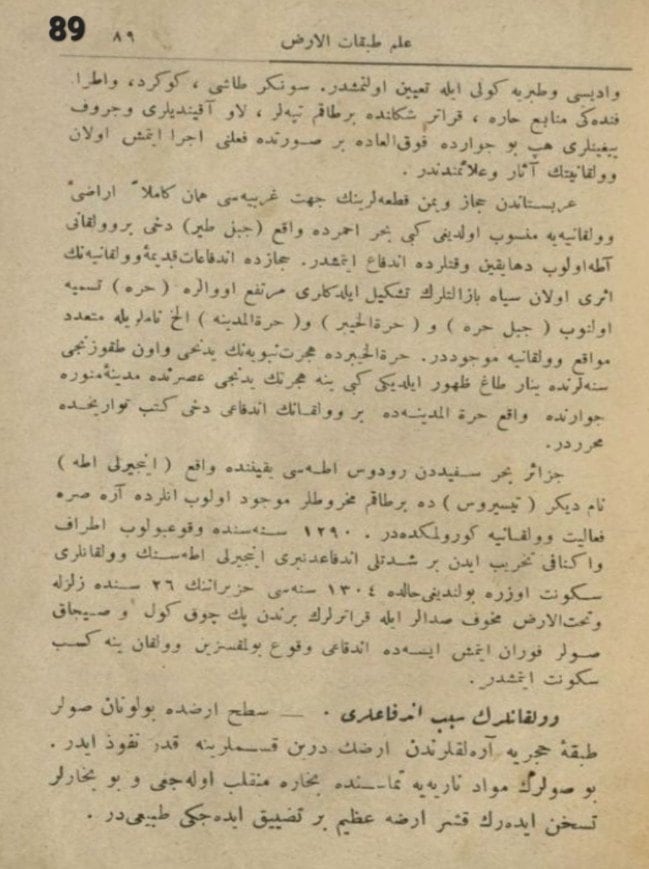 89
٨٩ علم طبقات الارض
واديسى وطبريه كولى ايله تعيين اولنمشدر. سونكر طاشى ، كوكرد، واطرا
فنده‌كى منابع حاره ، قراتر شكلنده برطاقم تپه‌لر ، لاو آقينديلرى وجروف
ييغينلرى هپ بو جوارده فوق‌العاده بر صورتده فعلنى اجرا ايتمش اولان
وولقانيتك آثار وعلائمندندر .
عربستاندن حجاز ويمن قطعه‌لرينك جهت غربيه‌سى همان كاملاً اراضئ
وولقانيه‌يه منسوب اولديغى كبى بحر احمرده واقع (جبل طير) دخى بروولقانى
آطه‌اولوب دهايقين وقتلرده اندفاع ايتمشدر. حجازده اندفاعات‌قديمۀوولقانيه‌نك
اثرى اولان سياه بازالتلرك تشكيل ايلدكلرى مرتفع اووالره ( حره ) تسميه
اولنوب ( جبل حره ) و ( حرةالخيبر ) و( حرةالمدينه ) الخ ناملريله متعدد
مواقع وولقانيه موجوددر. حرةالخيبرده هجرت‌نبويه‌نك يدنجى واون طقوزنجى
سنه‌لرنده ينار طاغ ظهور ايلديكى كبى ينه هجرتك يدنجى عصرنده مدينۀمنوره
جوارنده واقع حرة المدينه‌ده بر وولقانك اندفاعى دخى كتب تواريخده
محرردر.
جزائر بحر سفيددن رودوس اطه‌سى بقيننده واقع ( اينجيرلى اطه )
نام ديكر ( نيسيروس ) ده برطاقم مخروطلر موجود اولوب انلرده آره صره
فعاليت وولقانيه كورولمكده‌در . ١٢٩٠ سنه‌سنده وقوعبولوب اطراف
واكنافى تخريب ايدن بر شدتلى اندفاعدنبرى اينجيرلى اطه‌سنك وولقانلرى
سكونت اوزره بولنديغى‌حالده ١٣٠٤ سنه‌سى حزيراننك ٢٦ سنده زلزله
وتحت‌الارض مخوف صدالر ايله قراترلرك برندن پك چوق كول و صيجاق
صولر فوران ايتمش ايسه‌ده اندفاعى وقوع بولمقسزين وولقان ينه كسب
سكونت ايتمشدر .
وولقانلرك سبب اندفاعلرى . — سطح ارضده بولونان صولر
طبقۀ حجريه آره‌لقلرندن ارضك درين قسملرينه قدر نفوذ ايدر .
بو صولرك مواد ناريه‌يه تماسنده بخاره منقلب اوله‌جغى و بو بخارلر
تسخن ايده‌رك قشر ارضه عظيم بر تضييق ايده‌جكى طبيعى‌در .